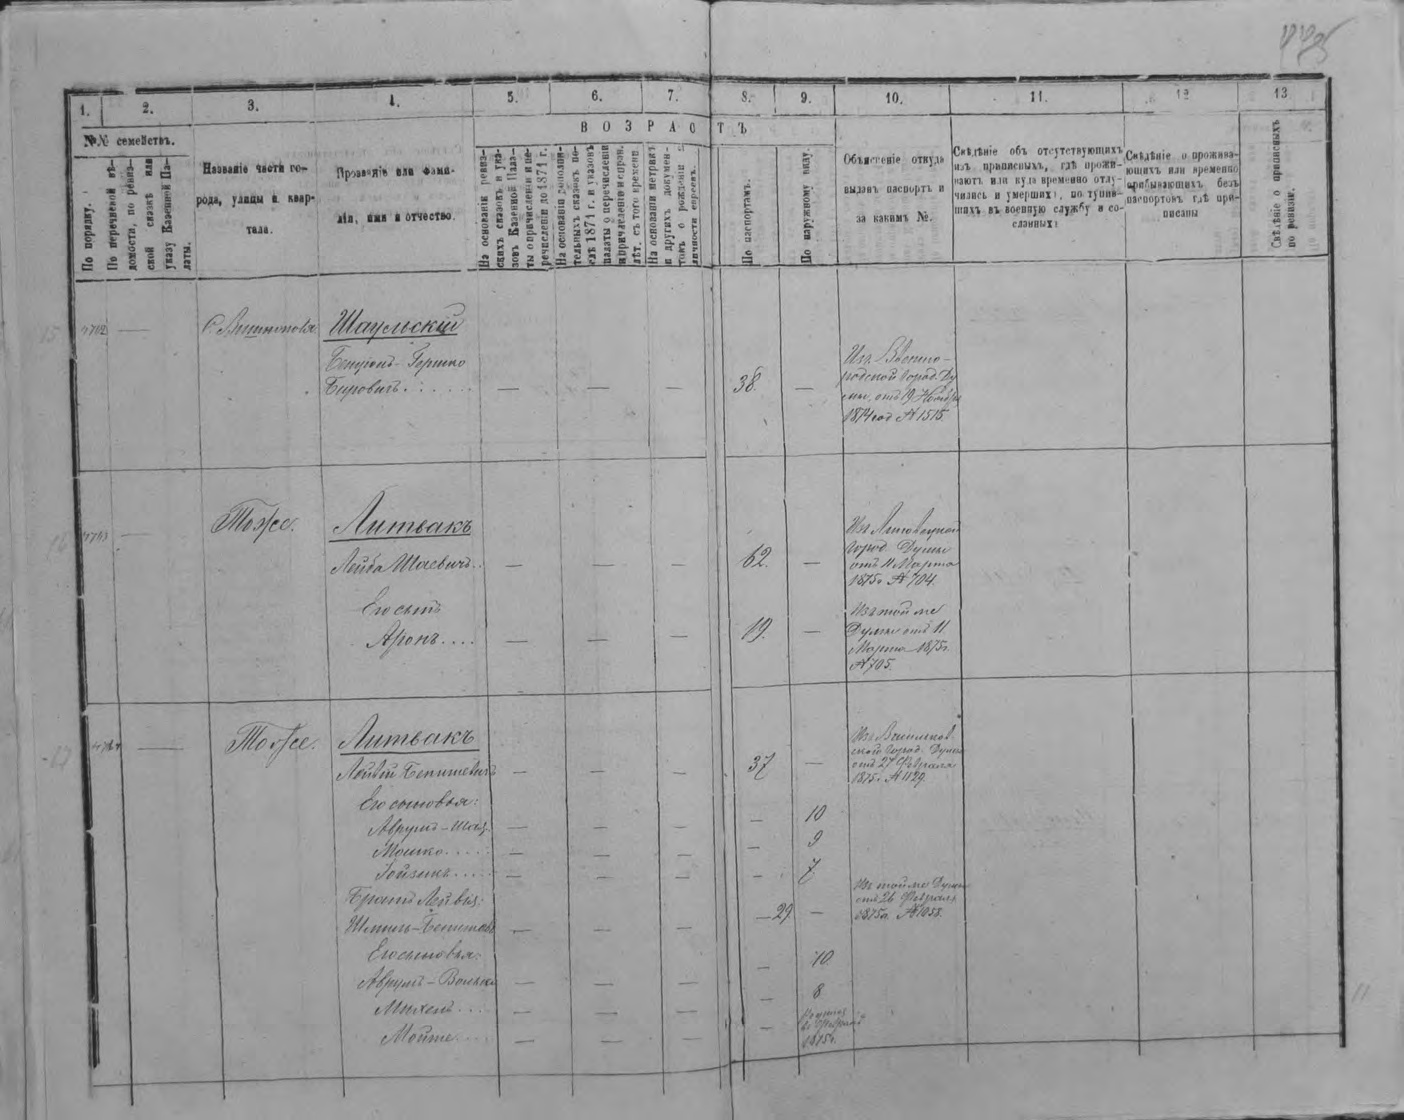 1. 2. 3. 4. 5. 6. 7. 8. 9. 10. 11. 12 13
ВОЗРАСТЪ
№№ семействъ.
По порядку.
По перечневой вѣ-
домости, по ревиз-
ской сказкѣ или
указу Казенной Па-
латы.
Названіе части го-
рода, улицы и квар-
тала.
Прозваніе или фами-
лія, имя и отчество.
На основаніи ревиз-
скихъ сказокъ и ука-
зовъ Казенной Пала-
ты о причисленіи и пе-
речисленіи до 1871 г.
На основаніи дополни-
тельныхъ сказокъ по-
слѣ 1871 г. и указовъ
палаты о перечисленіи
и причисленіи и исправ.
лѣт. съ того времени.
На основаніи метрикъ
и другихъ докумен-
товъ о рожденіи и
личности евреевъ.
По паспортамъ.
По наружному виду.
Объясненіе откуда
выданъ паспортъ и
за какимъ №.
Свѣдѣніе объ отсутствующихъ
изъ приписныхъ, гдѣ прожи-
ваютъ или куда временно отлу-
чились и умершихъ, поступив-
шихъ въ военную службу и со-
сланныхъ
Свѣдѣніе о прожива-
ющихъ или временно
прибывающихъ безъ
паспортовъ гдѣ при-
писаны
Свѣдѣніе о приписныхъ
по ревизіи.
15
Шаумскій
Бенціонъ-Гершко
Бировичъ — — — 38. —
город. Ду-
мы, отъ 19 Ноября
1874 год №1515.
16
Тоже. Литвакъ
Лейба Шаевичъ — — — 62. —
Город. Думы
отъ 11 Марта
1875г. №704.
Его сынъ
Аронъ — — — 19. —
Изъ той же
Думы отъ 11
Марта 1875г.
№705.
17
Тоже. Литвакъ
— — — 37 —
Изъ Васильков-
ской Город. Думы
отъ 27 Февраля
1875г. №1129.
Его сыновья:
Аврумъ-Шая — — — — 10
Мошко — — — — 9
— — — — 7
Братъ Лейвія:
Шмиль — — — 29 —
Изъ той же Думы
отъ 26 Февраля
1875г. №1058.
Его сыновья:
Аврумъ — — — — 10
Михель — — — — 8
— — — —
1875г.
11